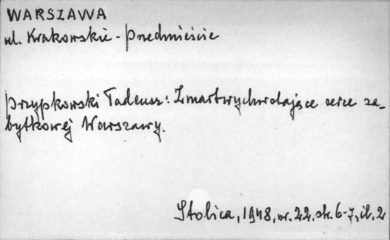 WARSZAWA
ul. Krakowskie-Przedmieście
Przypkowski Tadeusz: Zmartwychwstające serce za-
bytkowej Warszawy.
Stolica, 1948, nr. 22. str. 6-7, il. 2